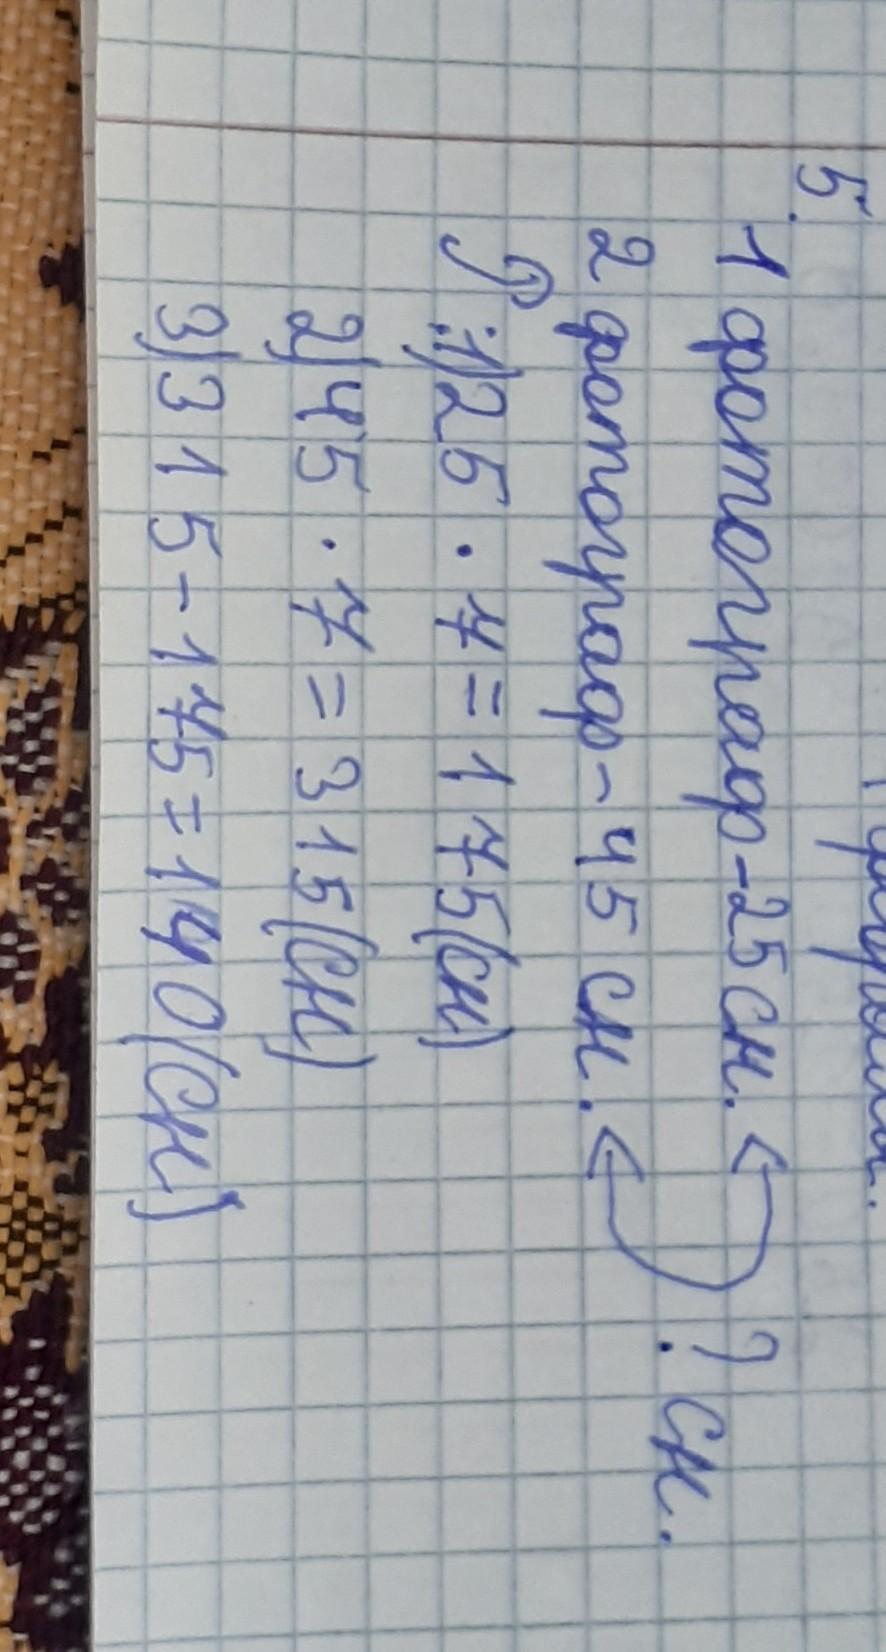 5.
1 фотограф-25 сн.
? сн.
2 фотограф-45 сн.
1)25·7=175(сн)
2)45·7=315(сн)
3)315-175=140(сн)